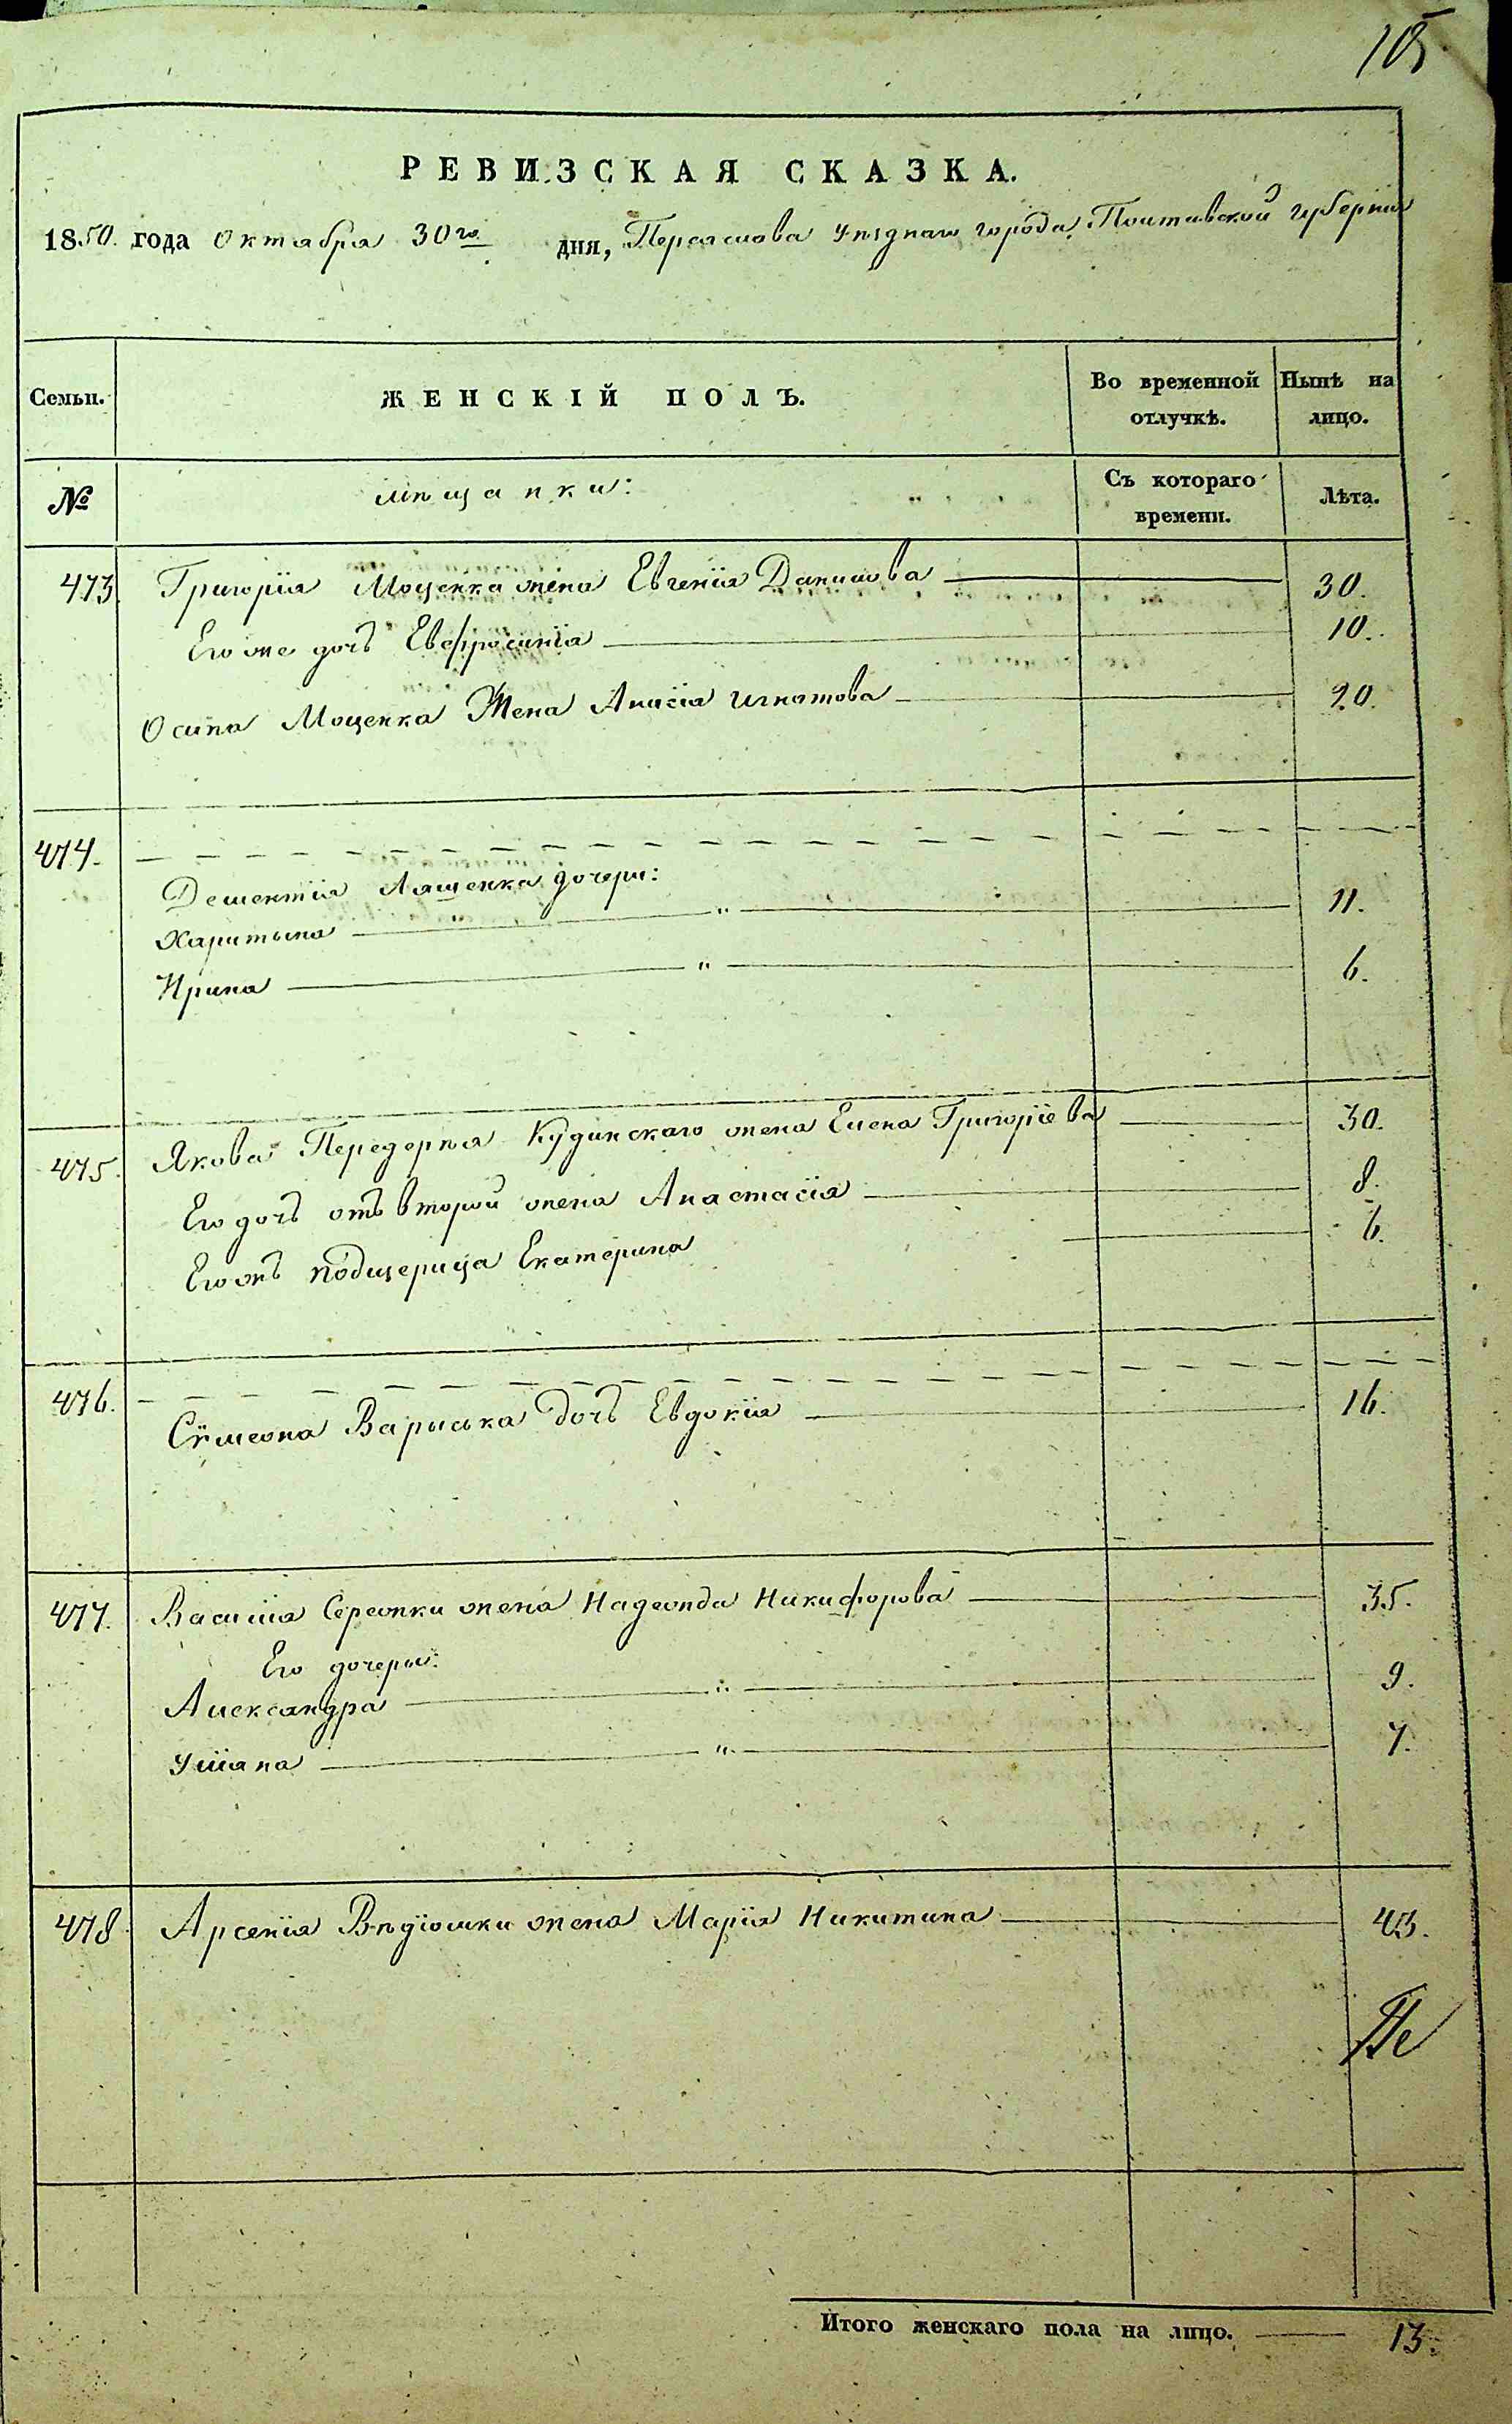 105
РЕВИЗСКАЯ СКАЗКА.
1850. года Октября 30го дня, Переяслова Уѣзднаго города, Полтавской губерніи
Семьи. ЖЕНСКІЙ ПОЛЪ. Во временной отлучкѣ. Нынѣ на лицо.
№ мѣщанки: Съ котораго времени. Лѣта.
473. Григорія Моценка жена Евгенія Данилова 30.
Его же дочь Евфросинія 10.
Осипа Моценка Жена Анисія Игнатова 20.
474.
Дементія Лященка дочери:
Харитына " 11.
Ирина " 6.
475. Якова Передерѣя Кудинскаго жена Елена Григоріева 30.
Его дочь отъ второй жены Анастасія 8.
Его жъ подщерица Екатерина 6.
476.
Сѵмеона Варылка дочь Евдокія 16.
477. Василія Сережки жена Надежда Никифорова 35.
Его дочери:
Александра " 9.
Уліана " 7.
478. Арсенія Вѣдіошки жена Марія Никитина 43.
Пе
Итого женскаго пола на лицо. 13.